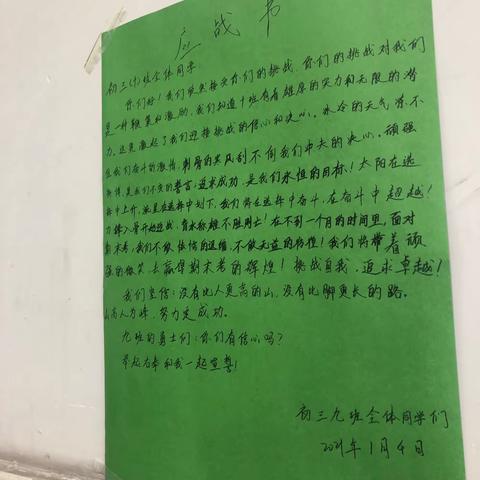 应战书
初三(十)班全体同学:
你们好!我们欣然接受你们的挑战,你们的挑战对我们
是一种鞭策和激励,我们知道十班有着雄厚的实力和无限的潜
力,这更激起了我们迎接挑战的信心和决心。冰冷的天气冻不
住我们奋斗的激情,刺骨的寒风刮不倒我们冲天的决心。顽强
拼搏,是我们不变的誓言;追求成功,是我们永恒的目标!太阳在选
择中上升,流星在选择中划下,我们将在选择中奋斗,在奋斗中超越!
开始迎战,肯永称雄不胜
期末考,我们不做怯懦的退缩,不做无益的彷徨!我们将带着顽
强的微笑,去赢得期末考的辉煌!挑战自我,追求卓越!
我们坚信:没有比人更高的山,没有比脚更长的路。
山高人为峰,努力定成功。
九班的勇士们:你们有信心吗?
举起右拳和我一起宣誓!
初三九班全体同学们
2021年1月4日